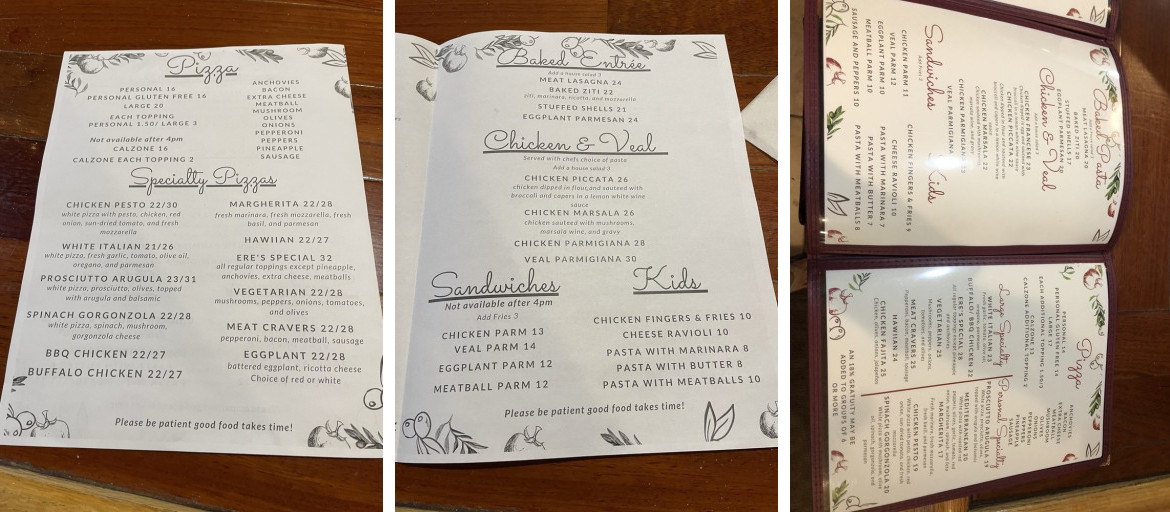 Pizza
PERSONAL 16
PERSONAL GLUTEN FREE 16
LARGE 20
EACH TOPPING
PERSONAL 1.50/ LARGE 3
Not available after 4pm
CALZONE 16
CALZONE EACH TOPPING 2
ANCHOVIES
BACON
EXTRA CHEESE
MEATBALL
MUSHROOM
OLIVES
ONIONS
PEPPERONI
PEPPERS
PINEAPPLE
SAUSAGE
Specialty Pizzas
CHICKEN PESTO 22/30
white pizza with pesto, chicken, red
onion, sun-dried tomato, and fresh
mozzarella
WHITE ITALIAN 21/26
white pizza, fresh garlic, tomato, olive oil,
oregano, and parmesan
PROSCIUTTO ARUGULA 23/31
white pizza, prosciutto, olives, topped
with arugula and balsamic
SPINACH GORGONZOLA 22/28
white pizza, spinach, mushroom,
gorgonzola cheese
BBQ CHICKEN 22/27
BUFFALO CHICKEN 22/27
MARGHERITA 22/28
fresh marinara, fresh mozzarella, fresh
basil, and parmesan
HAWIIAN 22/27
ERE'S SPECIAL 32
all regular toppings except pineapple,
anchovies, extra cheese, meatballs
VEGETARIAN 22/28
mushrooms, peppers, onions, tomatoes,
and olives
MEAT CRAVERS 22/28
pepperoni, bacon, meatball, sausage
EGGPLANT 22/28
battered eggplant, ricotta cheese
Choice of red or white
Please be patient good food takes time!
Baked Entrée
Add a house salad 3
MEAT LASAGNA 24
BAKED ZITI 22
ziti, marinara, ricotta, and mozzarella
STUFFED SHELLS 21
EGGPLANT PARMESAN 24
Chicken & Veal
Served with chefs choice of pasta
Add a house salad 3
CHICKEN PICCATA 26
chicken dipped in flour,and sauteed with
broccoli and capers in a lemon white wine
sauce
CHICKEN MARSALA 26
chicken sauteed with mushrooms,
marsala wine, and gravy
CHICKEN PARMIGIANA 28
VEAL PARMIGIANA 30
Sandwiches
Not available after 4pm
Add Fries 3
CHICKEN PARM 13
VEAL PARM 14
EGGPLANT PARM 12
MEATBALL PARM 12
Kids
CHICKEN FINGERS & FRIES 10
CHEESE RAVIOLI 10
PASTA WITH MARINARA 8
PASTA WITH BUTTER 8
PASTA WITH MEATBALLS 10
Please be patient good food takes time!
Baked Pasta
MEAT LASAGNA 20
BAKED ZITI 20
STUFFED SHELLS 17
EGGPLANT PARMESAN 20
Chicken & Veal
CHICKEN FRANCESE 23
CHICKEN PICCATA 22
CHICKEN MARSALA 22
CHICKEN PARMIGIANA
VEAL PARMIGIANA
Sandwiches
Add Fries 2
CHICKEN PARM 11
VEAL PARM 12
EGGPLANT PARM 10
MEATBALL PARM 10
SAUSAGE AND PEPPERS 10
Kids
CHICKEN FINGERS & FRIES 9
CHEESE RAVIOLI 10
PASTA WITH MARINARA 7
PASTA WITH BUTTER 7
PASTA WITH MEATBALLS 8
Pizza
PERSONAL 14
PERSONAL GLUTEN FREE 14
LARGE 17
EACH ADDITIONAL TOPPING
CALZONE 13
CALZONE ADDITIONAL TOPPING 2
ANCHOVIES
BACON
EXTRA CHEESE
MEATBALL
MUSHROOM
OLIVES
ONIONS
PEPPERONI
PEPPERS
PINEAPPLE
SAUSAGE
Large Specialty
WHITE ITALIAN 23
BUFFALO/ BBQ CHICKEN 22
ERE'S SPECIAL 28
VEGETARIAN 25
MEAT CRAVERS 25
HAWAIIAN 24
CHICKEN FAJITA 25
Personal Specialty
PROSCIUTTO ARUGULA 19
MEDITERRANEAN 20
MARGHERITA 17
CHICKEN PESTO 19
SPINACH GORGONZOLA 20
AN 18% GRATUITY MAY BE
ADDED TO GROUPS OF 6
OR MORE